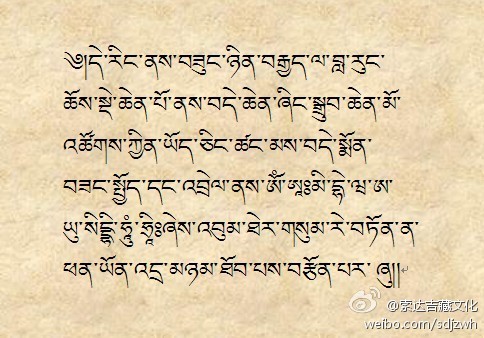 ༄༅།དེ་རིང་ནས་བཟུང་ཉིན་བརྒྱད་ལ་བླ་རུང་
ཆོས་སྡེ་ཆེན་པོ་ནས་བདེ་ཆེན་ཞིང་སྒྲུབ་ཆེན་མོ་
འཚོགས་ཀྱིན་ཡོད་ཅིང་ཚང་མས་བདེ་སྨོན་
བཟང་སྤྱོད་དང་འབྲེལ་ནས་ཨོཾ་ཨཱཿམི་དྷེ་ཝ་ཨ་
ཡུ་སིདྡྷི་ཧཱུྃ་ཧྲཱིཿཞེས་འབུམ་ཐེར་གསུམ་རེ་བཏོན་ན་
ཕན་ཡོན་འདྲ་མཉམ་ཐོབ་པས་བརྩོན་པར་ ཞུ།།
索达吉藏文化
weibo.com/sdjzwh